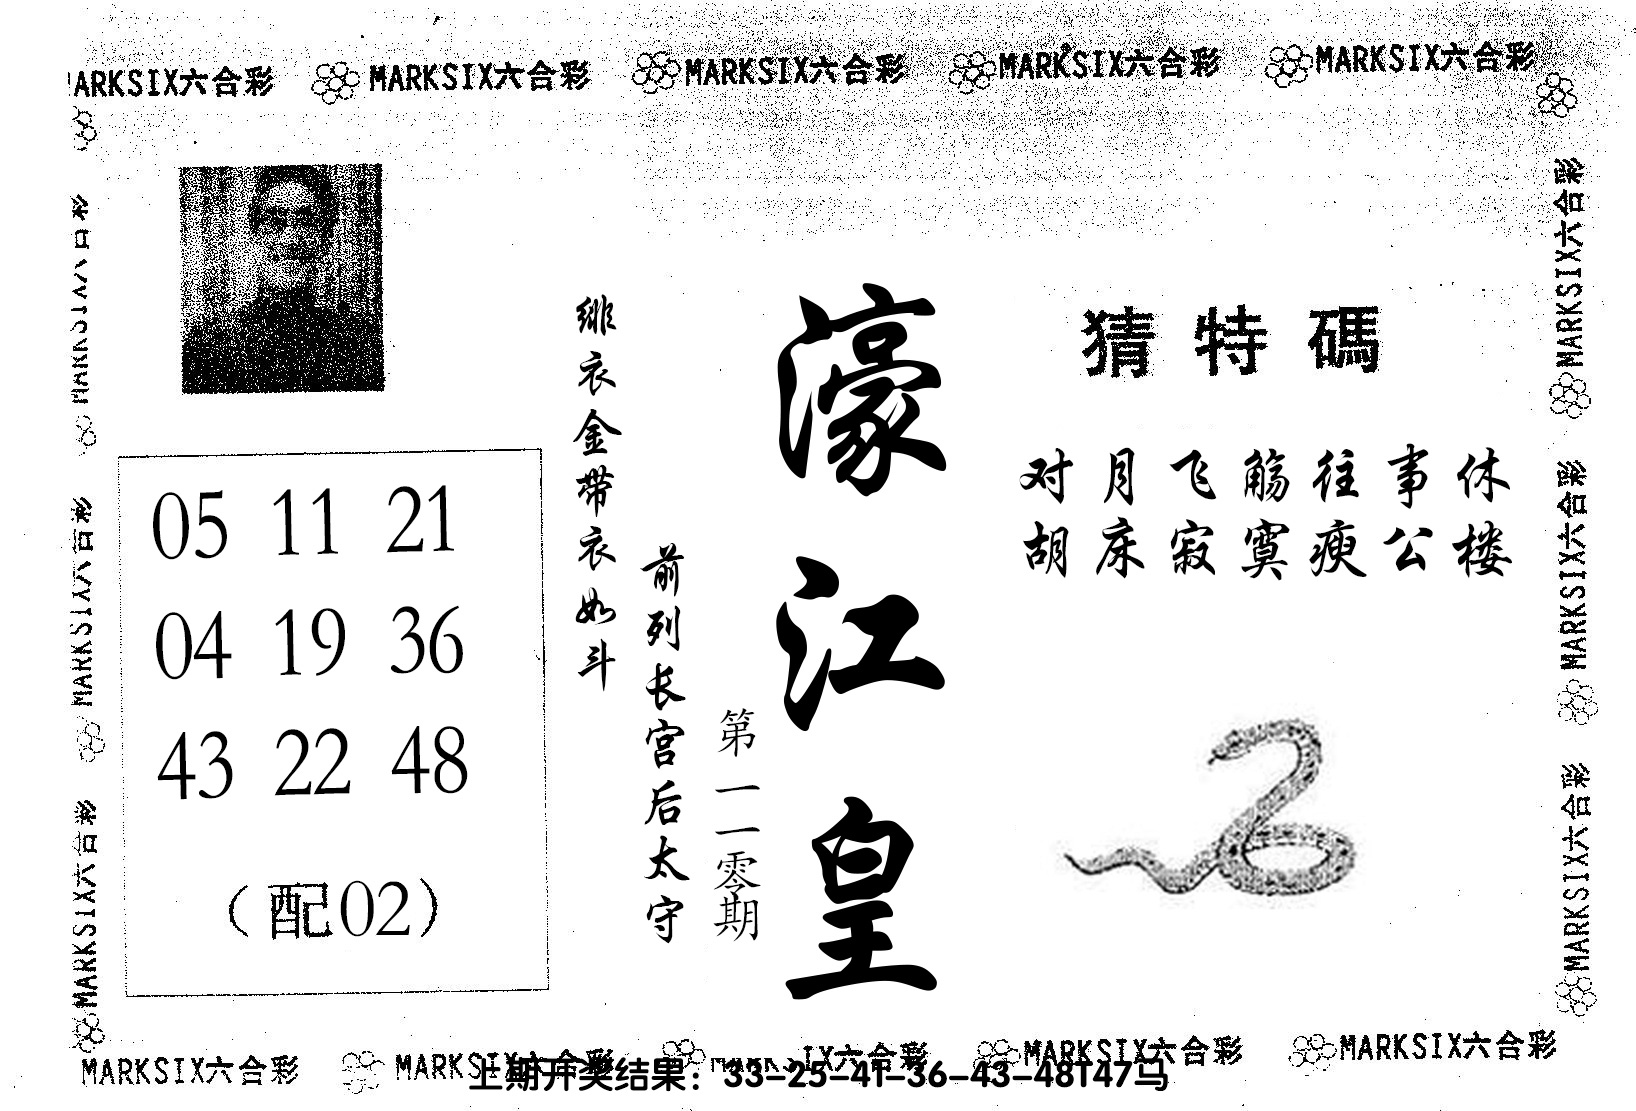 MARKSIX六合彩 MARKSIX六合彩 MARKSIX六合彩 MARKSIX六合彩 MARKSIX六合彩
MARKSIX六合彩
MARKSIX六合彩
MARKSIX六合彩
05 11 21
04 19 36
43 22 48
(配02)
绯衣金带衣如斗
前列长宫后太守
第一一零期
濠江皇
猜特碼
对月飞觞往事休
胡床寂寞瘐公楼
MARKSIX六合彩
MARKSIX六合彩
MARKSIX六合彩
MARKSIX六合彩 MARKSIX六合彩 MARKSIX六合彩 MARKSIX六合彩 MARKSIX六合彩
上期开奖结果：33-25-41-36-43-48T47马